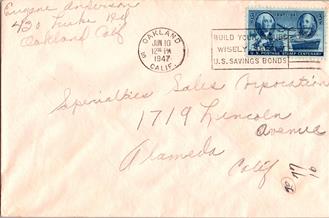 Eugene Anderson
420
Oakland Calif
OAKLAND
JUN 10
12 30 PM
1947
CALIF.
BUILD YOUR
WISELY
U.S. SAVINGS BONDS
U.S. POSTAGE STAMP CENTENARY
Specialties Sales Corporation
1719 Lincoln
Avenue
Alameda
Calif